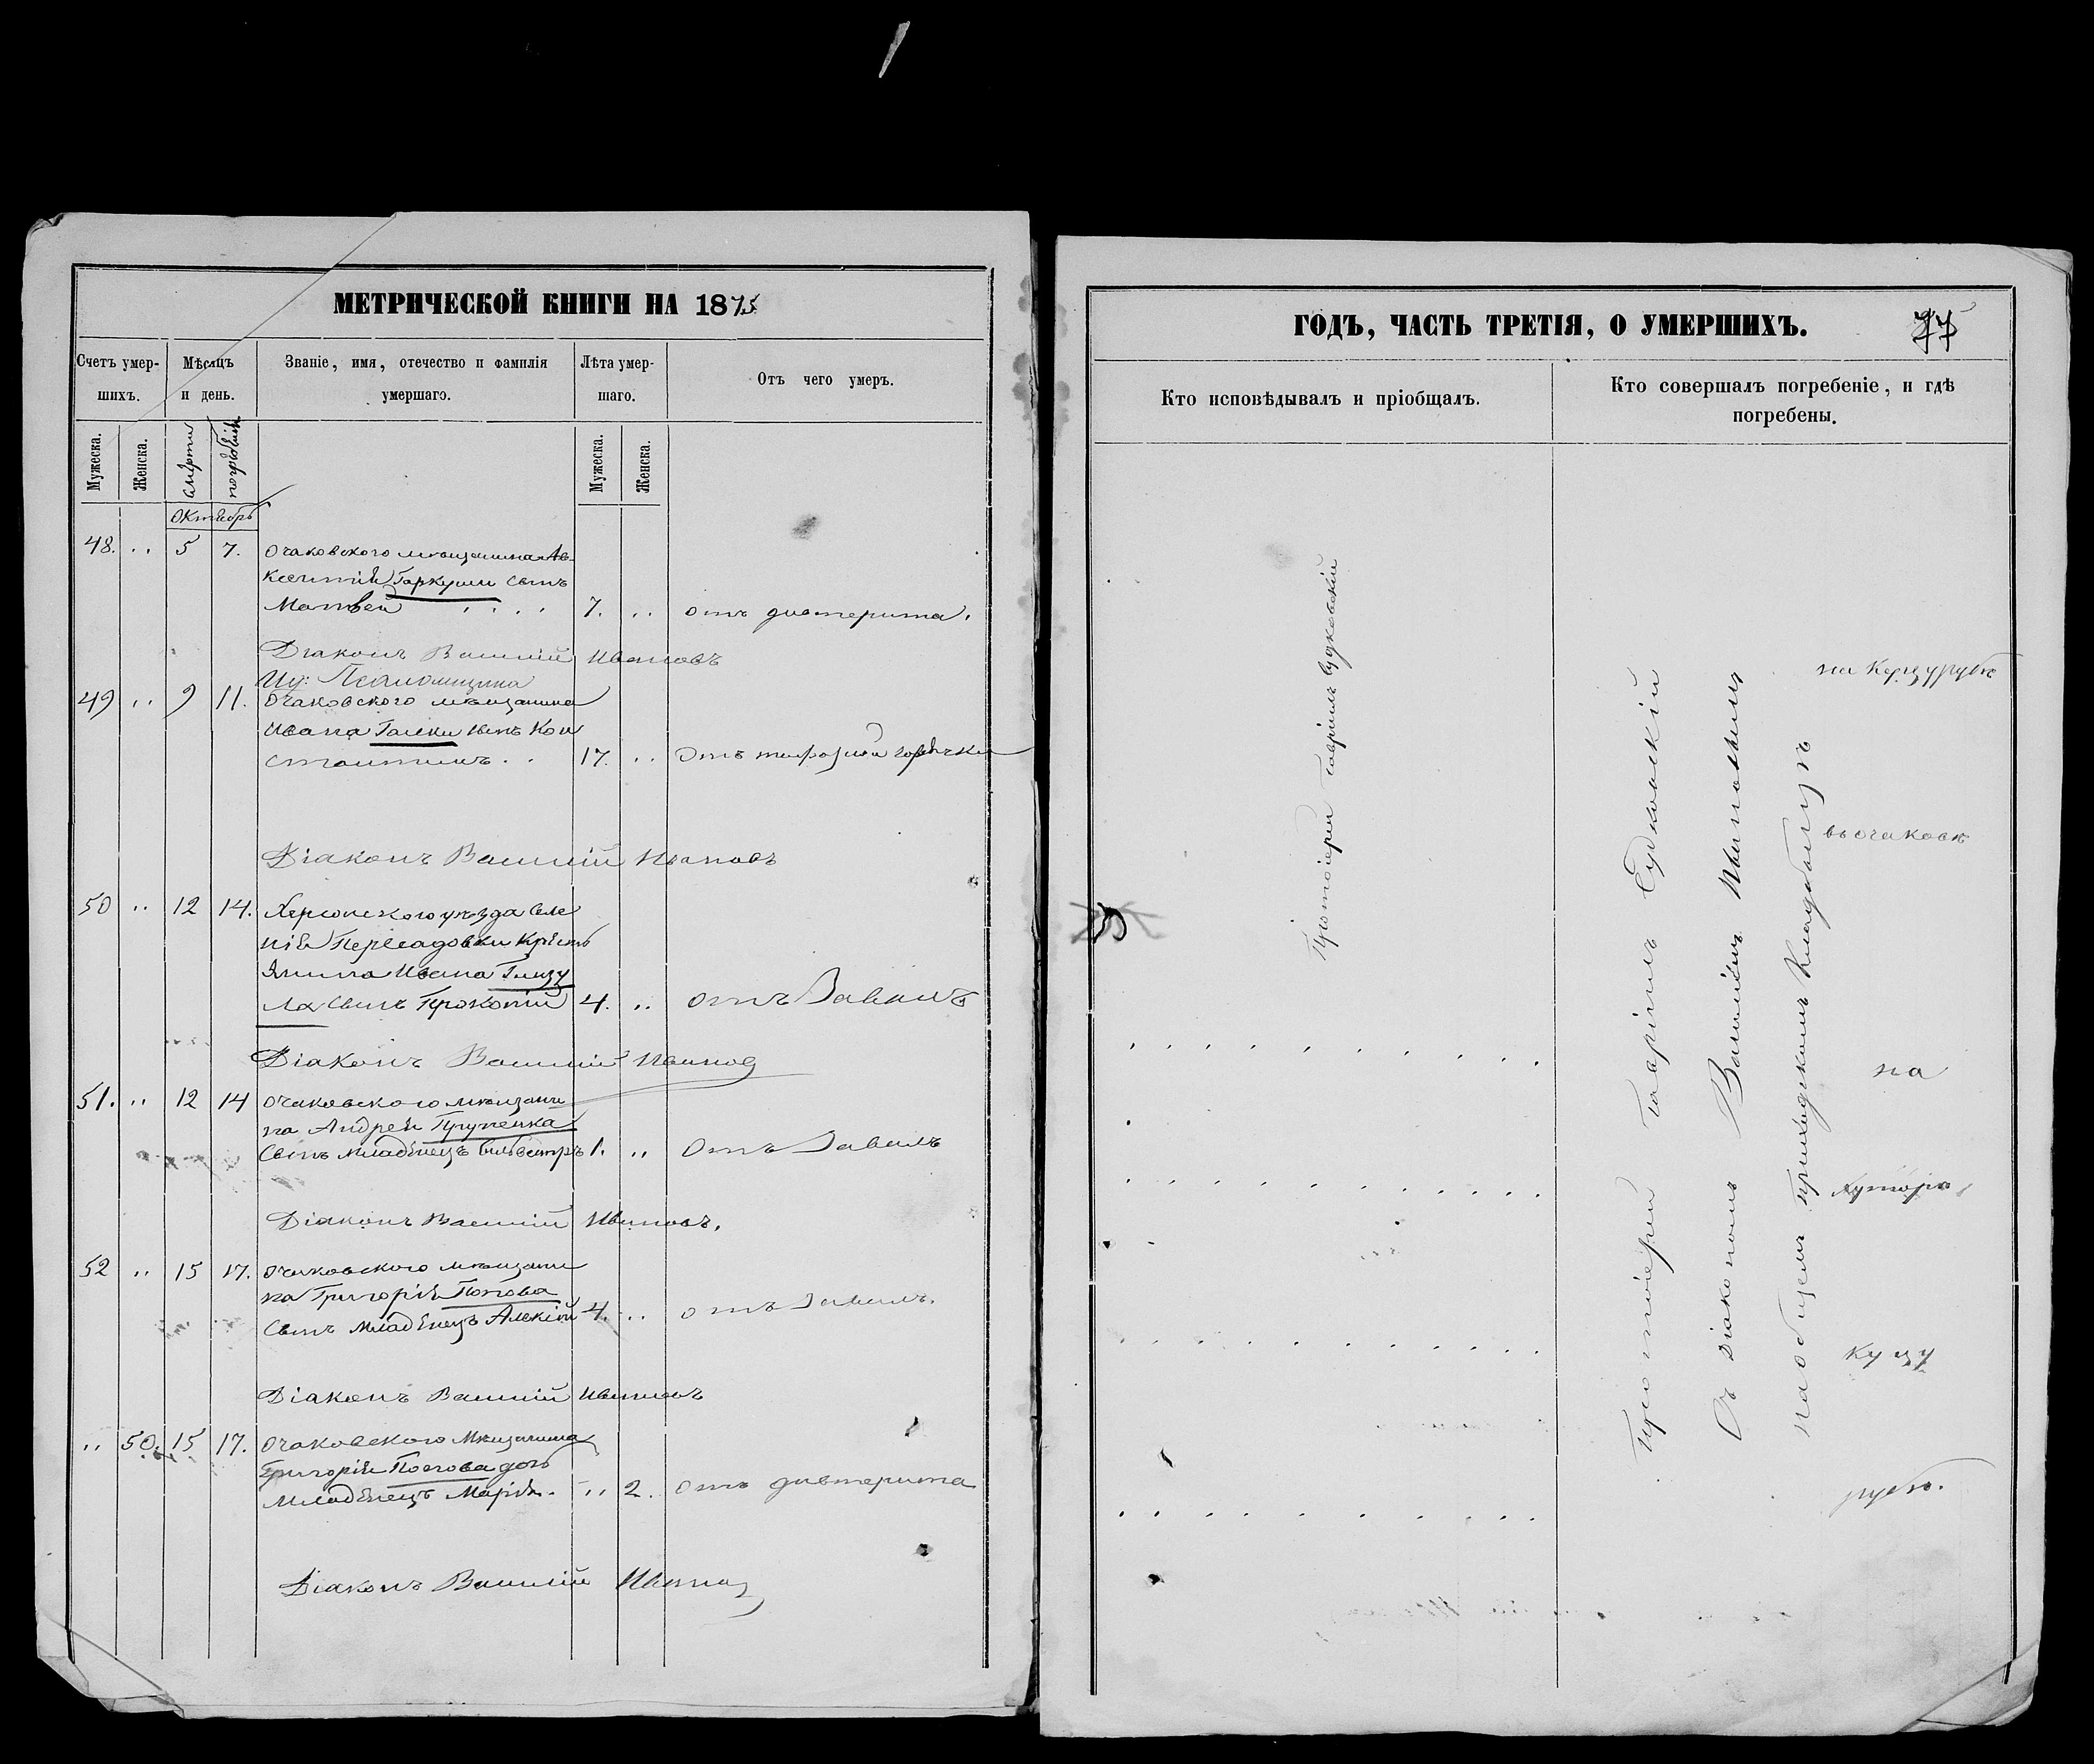 МЕТРИЧЕСКОЙ КНИГИ НА 1875
Счетъ умер-
шихъ.
Мѣсяцъ
и день.
Званіе, имя, отечество и фамилія
умершаго.
Лѣта умер-
шаго.
Отъ чего умеръ.
Мужеска.
Женска.
смерти
погребенія
Мужеска.
Женска.
Октябрь
48. .. 5 7. Очаковского мѣщанина Ав-
ксентія Гаркуши сынъ
Матвей . . . . 7. .. отъ дивтерита.
Діаконъ Василій Ивановъ
49 .. 9 11. Очаковского мѣщанина
Ивана сынъ Кон
стантинъ . . 17. .. Отъ горячки
Діаконъ Василій Ивановъ
50 .. 12 14. Херсонского уѣзда Селе
нія Пересадовки Крестъ
янина Ивана Глизу
ла сынъ Прокопій 4. .. отъ Завалъ
Діаконъ Василій Иванов
51. .. 12 14 Очаковского мѣщани
на Андрея
Сынъ младенецъ Сильвестръ 1. .. Отъ Завалъ
Діаконъ Василій Ивановъ.
52 .. 15 17. Очаковского мѣщани
на Григорія Попова
Сынъ младенецъ Алексій 4. .. отъ Завалъ.
Діаконъ Василій Ивановъ
.. 50. 15 17. Очаковского Мѣщанина
Григорія Попова дочь
младенецъ Марія. .. 2. отъ дивтерита
Діаконъ Василій Иванов
ГОДЪ, ЧАСТЬ ТРЕТІЯ, О УМЕРШИХЪ.
77
Кто исповѣдывалъ и пріобщалъ.
Кто совершалъ погребеніе, и гдѣ
погребены.
Протоіерей Гавріилъ Судковскій
Протоіерей Гавріилъ Судковскій
Съ діакономъ Василіемъ Ивановымъ
на общемъ приходскомъ Кладбищѣ
въ Очаковѣ
на
хутора
Куцу
рубѣ.